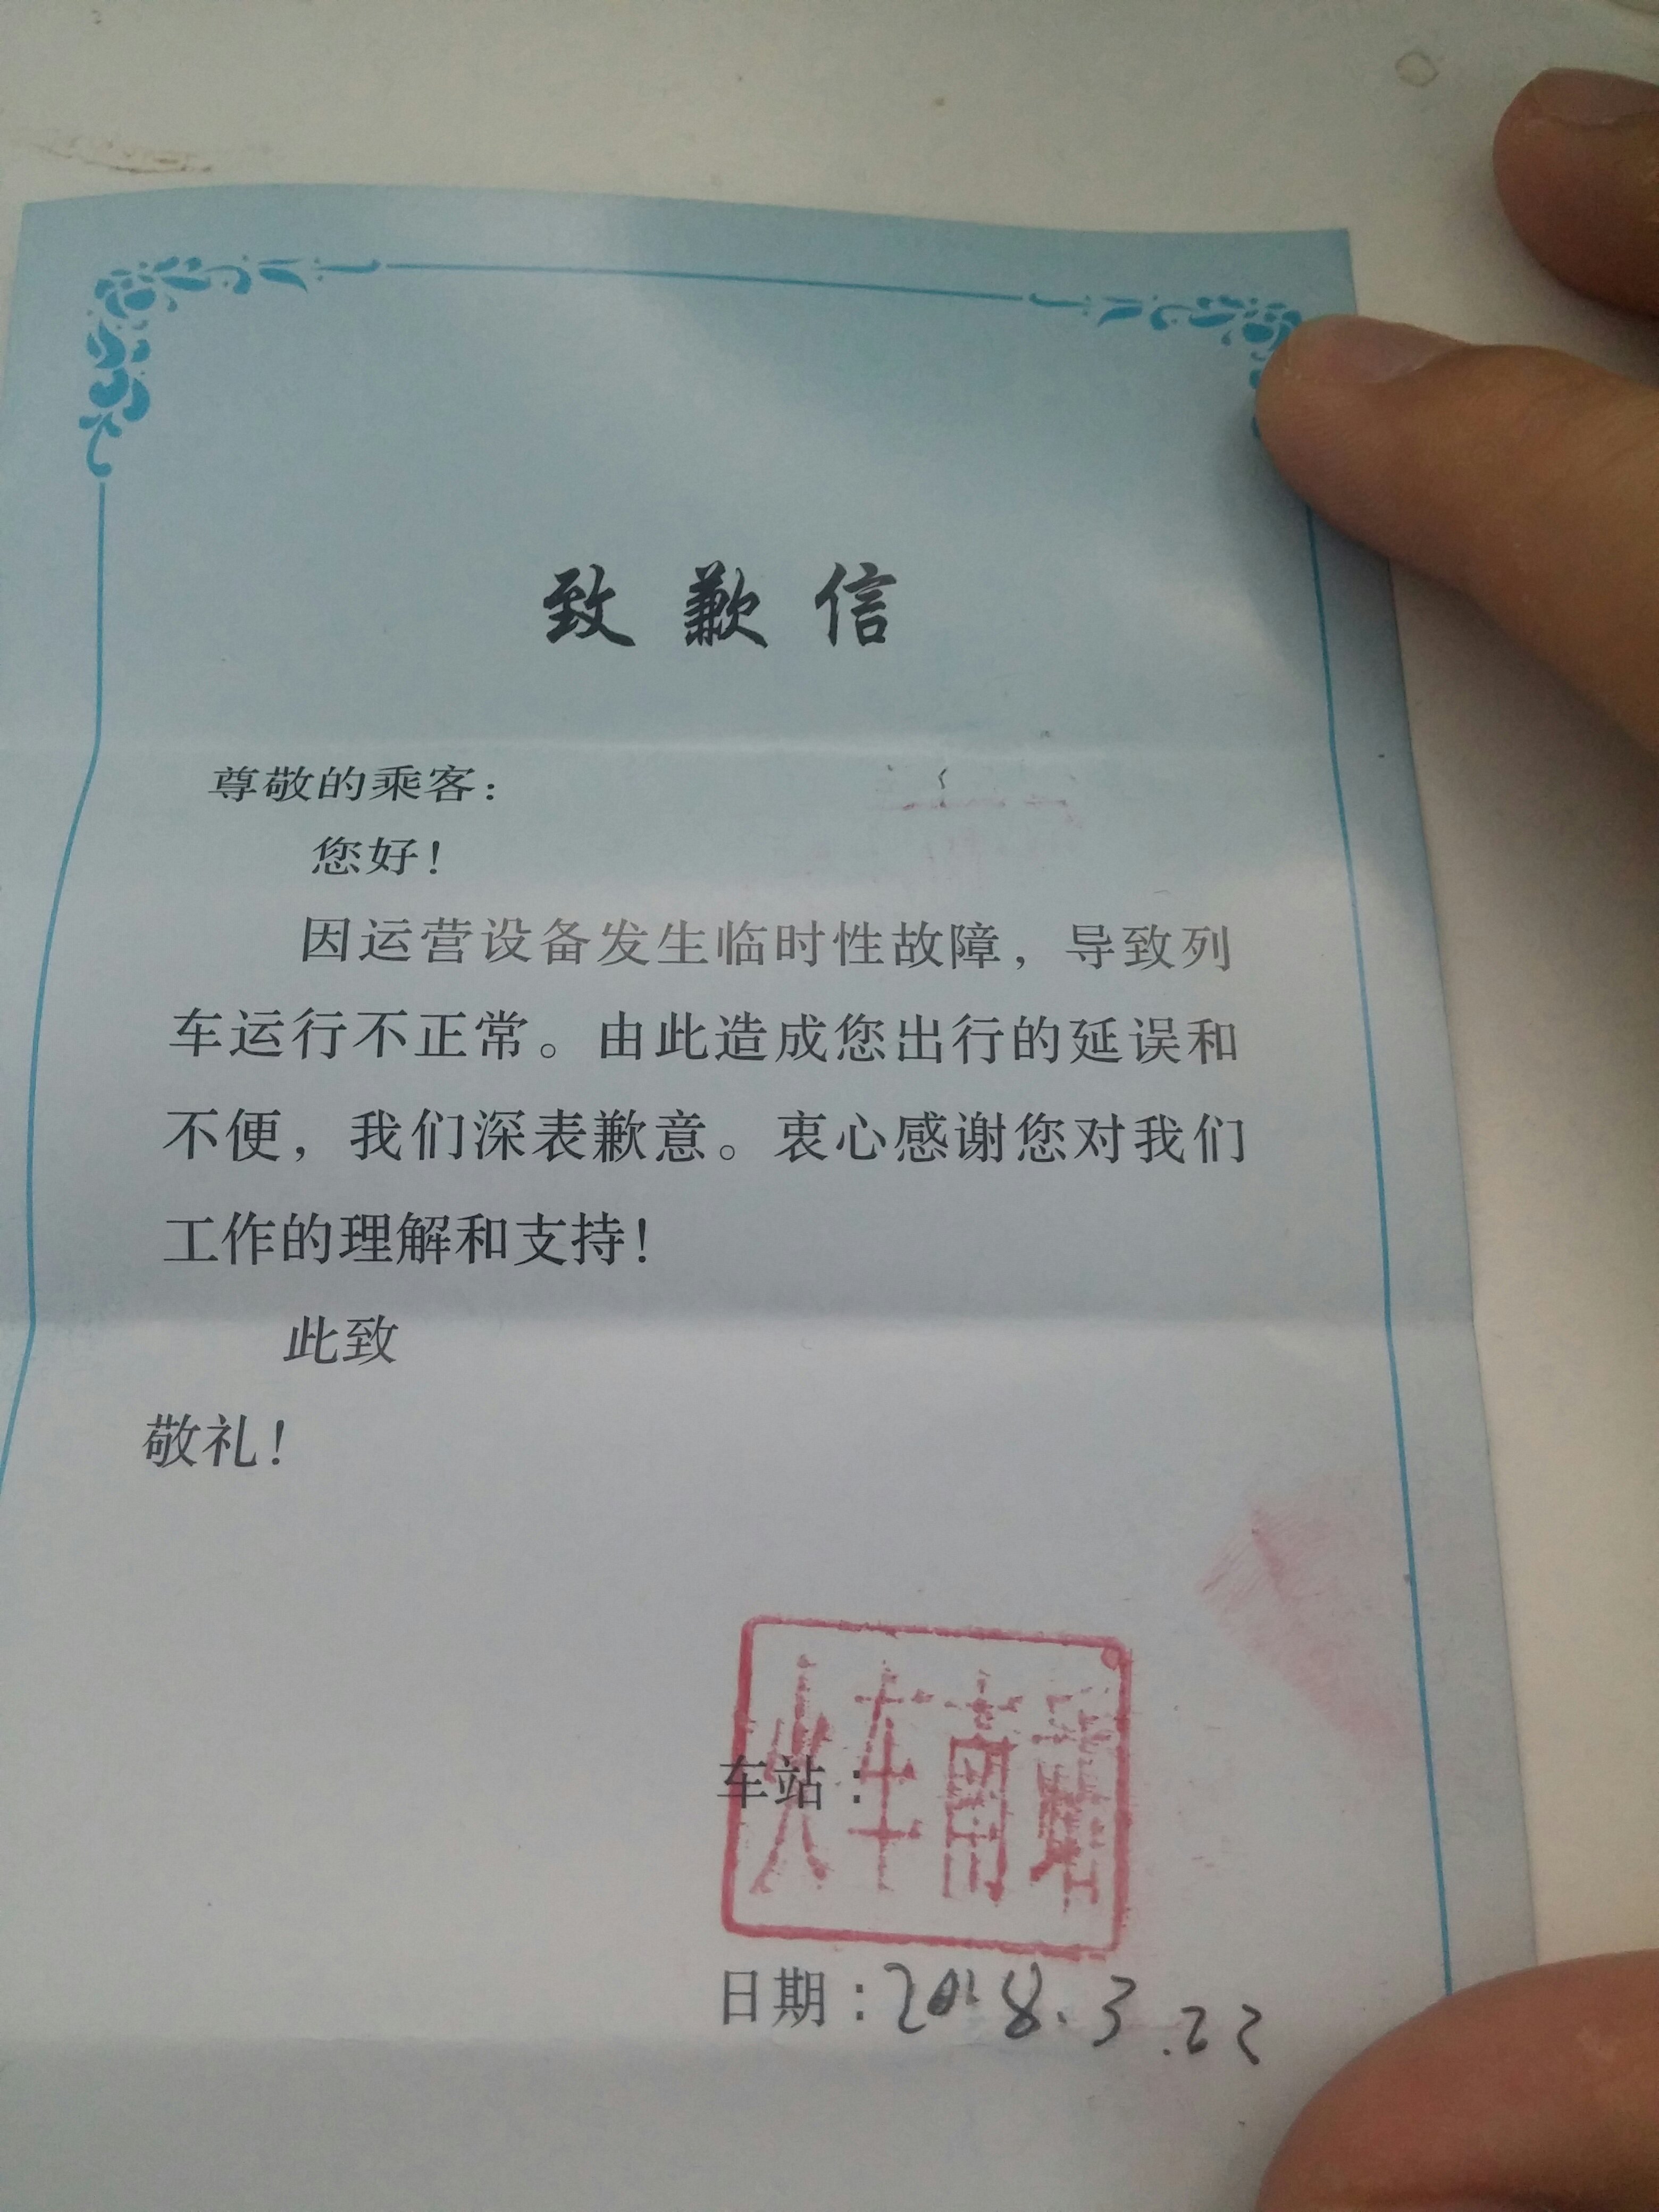 致歉信
尊敬的乘客：
您好！
因运营设备发生临时性故障，导致列
车运行不正常。由此造成您出行的延误和
不便，我们深表歉意。衷心感谢您对我们
工作的理解和支持！
此致
敬礼！
火车南站
车站：
日期：2018.3.22